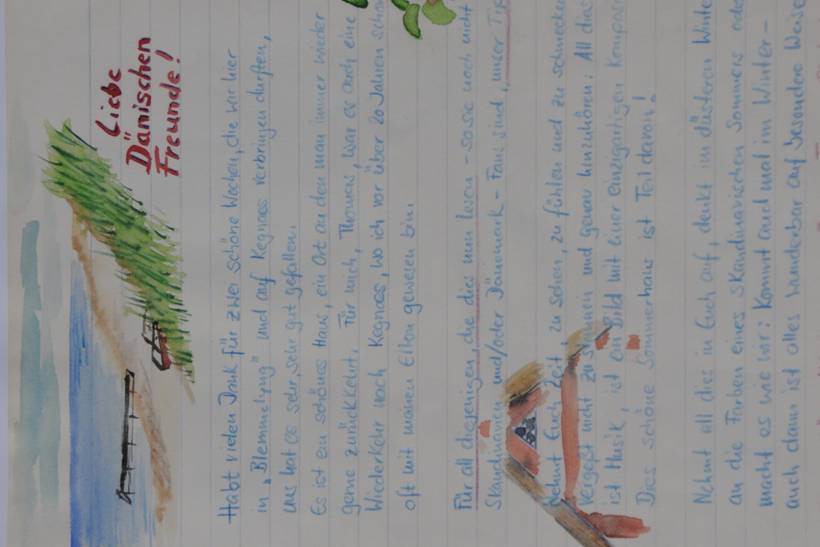 Liebe
Dänischen
Freunde!
Habt vielen Dank für zwei schöne Wochen, die wir hier
in „Blemmelyng" und auf Kegnaes verbringen durften,
uns hat es sehr, sehr gut gefallen.
Es ist ein schönes Haus, ein Ort an den man immer wieder
gerne zurückkehrt. Für mich, Thomas, war es auch eine
Wiederkehr nach Kegnaes, wo ich vor über 20 Jahren schon
oft mit meinen Eltern gewesen bin.
Für all diejenigen, die dies nun lesen - so sie noch nicht
Skandinavien und/oder Dänemark - Fans sind, unser Tip
Nehmt Euch Zeit zu sehen, zu fühlen und zu schmecken
vergeßt nicht zu und genau hinzuhören: All dies
ist Musik, ist ein Bild mit einer einzigartigen
Dies schöne Sommerhaus ist Teil davon!
Nehmt all dies in Euch auf, denkt im düsteren Winter
an die Farben eines skandinavischen Sommers oder
macht es wie wir: Kommt auch mal im Winter -
auch dann ist alles wunderbar auf besondere Weise